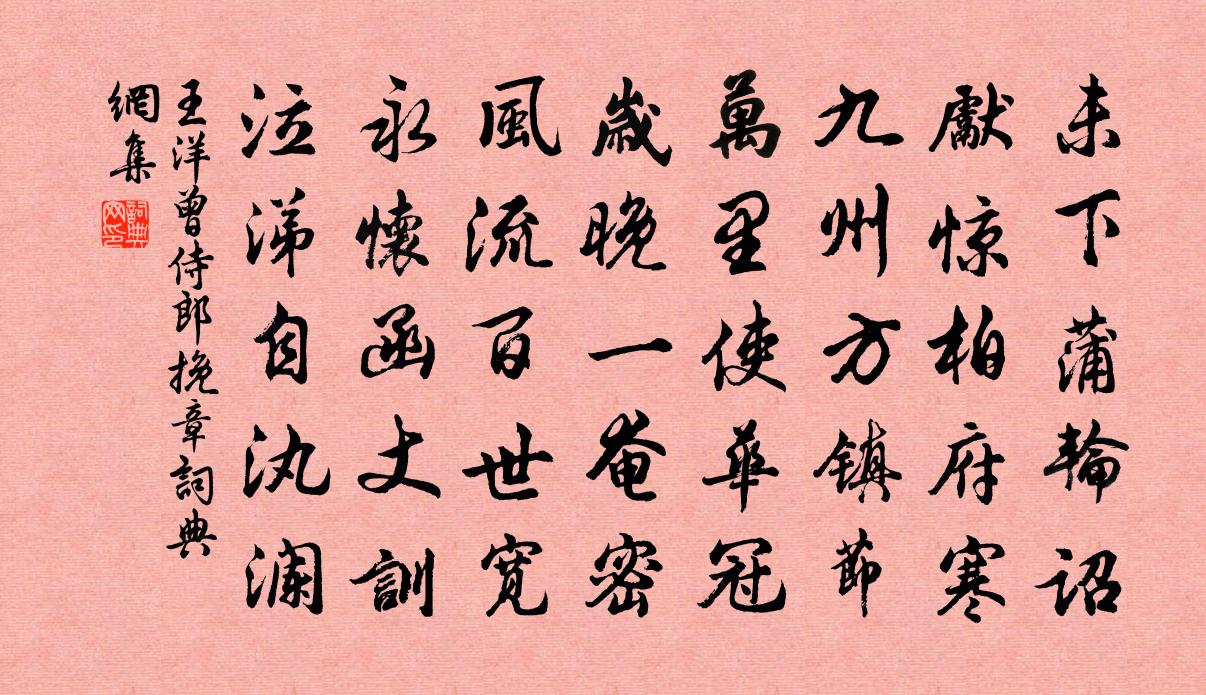 未下蒲輪詔
獻惊柏府寒
九州方镇節
萬里使華冠
歲晚一奄密
風流百世寛
永懷函丈訓
泣涕自汍澜
王洋曾侍郎挽章詞典
網集
詞典
网印